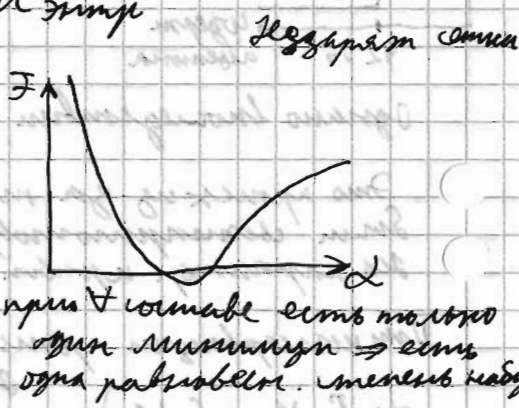 энтр
Незаряж сетка
F
α
при ∀ составе есть только
один минимум ⇒ есть
одна равновесн. степень набу